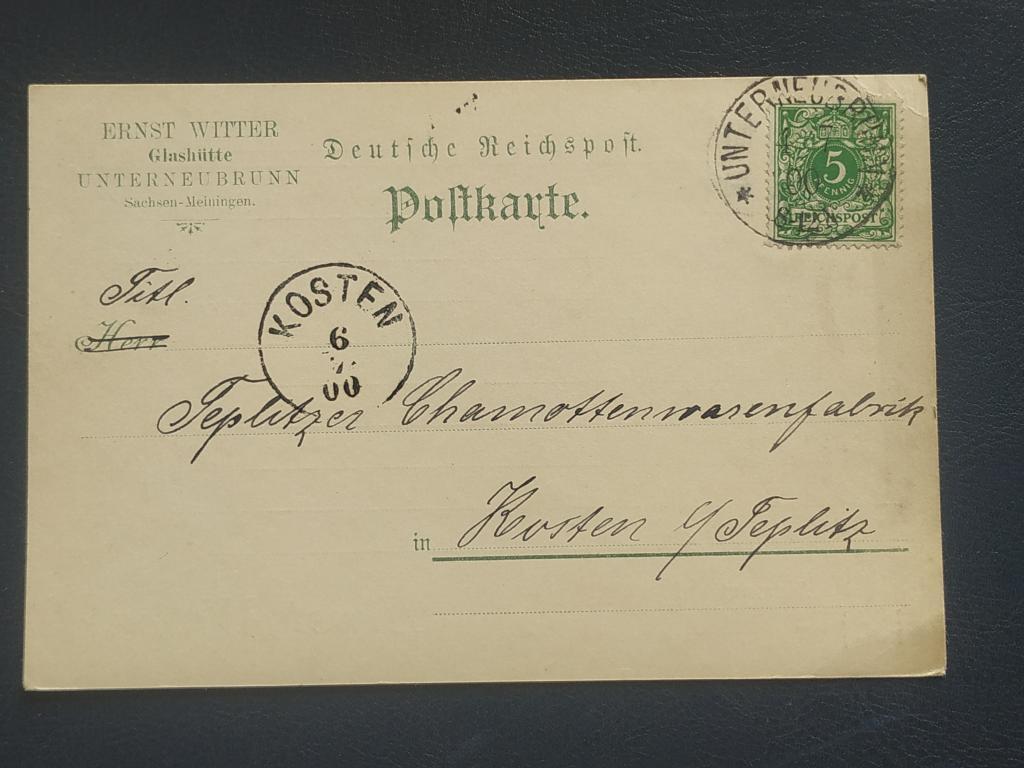 ERNST WITTER
Glashütte
UNTERNEUBRUNN
Sachsen-Meiningen.
Deutsche Reichspost.
Postkarte.
UNTERNEUBRUNN
00
8-12
5
PFENNIG
REICHSPOST
Titl.
Herr
KOSTEN
6
00
Teplitzer Chamottenwarenfabrik
in Kosten b/Teplitz